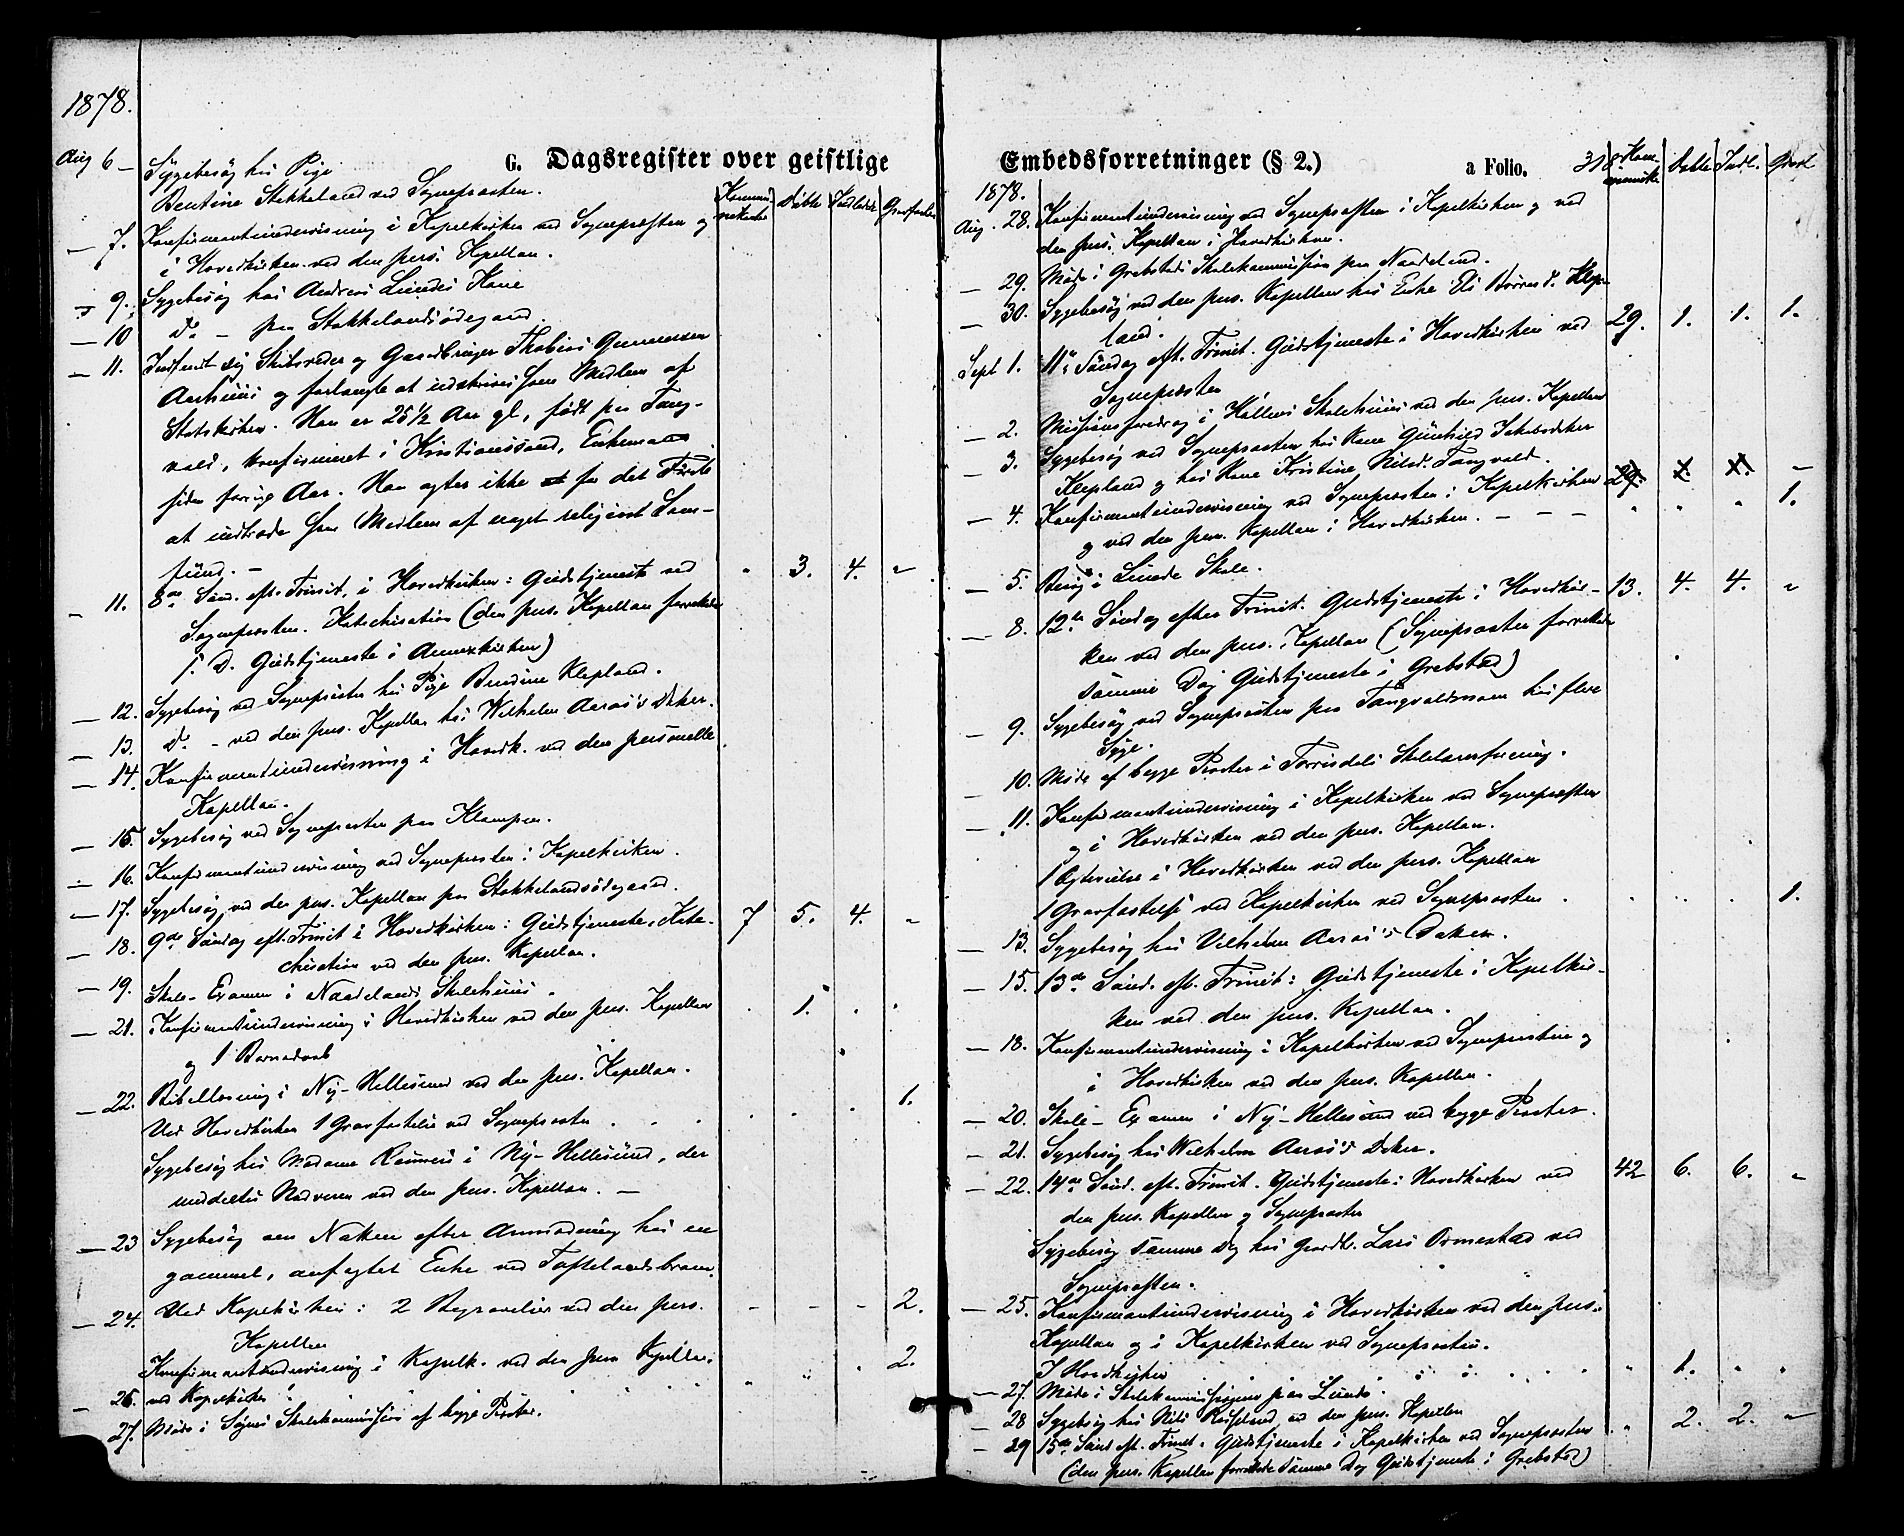 1878.
G. Dagsregister over geistlige
Kommunikanter Döbte Indledede Gravfæstede
Aug 6 – Sygebesøg hos Pige
Bentine Stokkeland ved Sognepræsten.
– 7. Konfirmantundervisning i Kapelkirken ved Sognepræsten og
i Hovedkirken ved den pers. Kapellan.
– 9. Sygebesøg hos Andreas Lundes Kone
– 10 Do – paa Stokkelandsødegaard.
– 11. Indfandt sig Skibsreder og Tobias Gunnersen
Aarhuus og forlangte at indskrives som Medlem af
Statskirken. Han er 25 1/2 Aar gl, født paa Tang-
vald, konfirmeret i Kristianssand, Enkemand
siden forrige Aar. Han agter ikke for det Første
at indtræde som Medlem af noget religiøst Sam-
fund. – " 3. 4. "
– 11. 8de Sønd. eft. Trinit. i Hovedkirken: Gudstjeneste ved
Sognepræsten. Katechisation (den pers. Kapellan forrettede
s. D. Gudstjeneste i Annexkirken)
– 12. Sygebesøg ved Sognepræsten hos Pige Bendine Klepland.
– 13. Do – ved den pers. Kapellan hos Wilhelm Aarøs's Datter.
– 14. Konfirmantundervisning i Hovedk. ved den personelle
Kapellan.
– 15. Sygebesøg ved Sognepræsten paa Klampen.
– 16. Konfirmantundervisning ved Sognepræsten i Kapelkirken.
– 17. Sygebesøg ved den pers. Kapellan paa Stokkelandsødegaard.
– 18. 9de Søndag eft. Trinit i Hovedkirken: Gudstjeneste, Kate- 7 5. 4. "
chisation ved den pers. Kapellan.
– 19. Skole-Examen i Naadelands Skolehuus.
– 21. Konfirmantundervisning i Hovedkirken ved den pers. Kapellan . 1. . .
og 1 Barnedaab
– 22. Bibellæsning i Ny-Hellesund ved den pers. Kapellan.
Ved Hovedkirken 1 Gravfæstelse ved Sognepræsten . . . 1.
Sygebesøg hos Madame i Ny-Hellesund, der
meddeltes Nadveren ved den pers. Kapellan. –
– 23 Sygebesøg om Natten efter Anmodning hos en
gammel, anfægtet Enke ved Toftelandsbroen.
– 24. Ved Kapelkirken: 2 Begravelser ved den pers. – – – 2.
Kapellan
Konfirmantundervisning i Kapelk. ved den pers Kapellan. . 2.
– 26. ved Kapelkirken " " " "
27. Møde i Søgne Skolekommission af begge Præster.
Embedsforretninger (§ 2.)
a Folio. 318
Kommunike Døbte Indl. Gravf
1878.
Aug. 28. Konfirmantundervisning ved Sognepræsten i Kapelkirken og ved
den pers. Kapellan i Hovedkirken.
– 29. Møde i Grebstads Skolekommission paa Naadeland.
– 30. Sygebesøg ved den pers. Kapellan hos Enke Klep-
land.
Sept 1. 11te Søndag eft. Trinit. Gudstjeneste i Hovedkirken ved 29. 1. 1. 1.
Sognepræsten
– 2. Missionsforedrag i Høllens Skolehuus ved den pers. Kapellan
– 3. Sygebesøg ved Sognepræsten hos Kone Gunhild Jakobsdatter
Klepland og hos Kone Kristine Nilsd. Tangvald. 29. 1. 1. –
– 4. Konfirmantundervisning ved Sognepræsten i Kapelkirken " " " 1.
og ved den pers. Kapellan i Hovedkirken. – – –
– 5. Besøg i Lunde Skole.
– 8. 12te Søndag efter Trinit. Gudstjeneste i Hovedkir- 13. 4. 4. "
ken ved den pers. Kapellan (Sognepræsten forrettede
samme Dag Gudstjeneste i Grebstad)
– 9. Sygebesøg ved Sognepræsten paa Tangvaldsmoen hos flere
Syge.
– 10. Møde af begge Præster i Torrisdals Skolelærerforening.
– 11. Konfirmantundervisning i Kapelkirken ved Sognepræsten
og i Hovedkirken ved den pers. Kapellan.
1 Ægtevielse i Hovedkirken ved den pers. Kapellan
1 Gravfæstelse ved Kapelkirken ved Sognepræsten . . . . 1.
– 13. Sygebesøg hos Vilhelm Aarøs's Datter.
– 15. 13de Sønd. eft. Trinit: Gudstjeneste i Kapelkir-
ken ved den pers. Kapellan.
– 18. Konfirmantundervisning i Kapelkirken ved Sognepræsten og
i Hovedkirken ved den pers. Kapellan.
– 20. Skole-Examen i Ny-Hellesund ved begge Præster.
– 21. Sygebesøg hos Wilhelm Aarøs's Datter.
– 22. 14de Sønd. eft. Trinit. Gudstjeneste i Hovedkirken ved 42 6. 6. "
den pers. Kapellan og Sognepræsten
Sygebesøg samme Dag hos Gaardb. Lars Ormestad ved
Sognepræsten.
– 25. Konfirmantundervisning i Hovedkirken ved den pers.
Kapellan og i Kapelkirken ved Sognepræsten.
I Hovedkirken . . . . " 1. " "
– 27. Møde i Skolekommissionen paa Lunde.
– 28 Sygebesøg hos Nils ved den pers. Kapellan
– 29 15de Sønd eft. Trinit. Gudstjeneste i Kapelkirken ved Sognepræsten . " 2. 2. "
(den pers. Kapellan forrettede samme Dag Gudstjeneste i Grebstad)